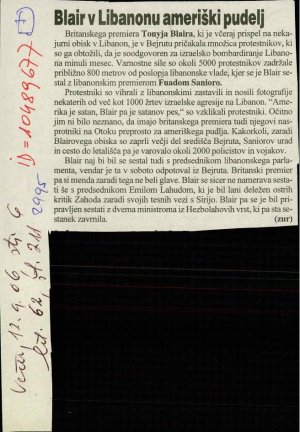 Blair v Libanonu ameriški pudelj
Britanskega premiera Tonyja Blaira, ki je včeraj prispel na nena-
jurni obisk v Libanon, je v Bejrutu pričakala množica protestnikov, ki
so ga obtožili, da je soodgovoren za izraelsko bombardiranje Libano-
na minuli mesec. Varnostne silo so okoli 5000 protestnikov zadržale
približno 800 metrov od poslopja libanonske vlade, kjer se je Blair se-
stal z libanonskim premierom Fuadom Sanioro.
Protestniki so vihrali z libanonskimi zastavili in nosili fotografije
nekaterih od več kot 1000 žrtev izraelske agresije na Libanon. "Ame-
rika je satan, Blair pa je satanov pes," so vzklikali protestniki. Očitno
jim ni bilo neznano, da imajo britanskega premiera tudi njegovi nas-
protniki na Otoku preprosto za ameriškega pudlja. Kakorkoli, zaradi
Blairovega obiska so zaprli večji del središča Bejruta, Saniorov urad
in cesto do letališča pa je varovalo okoli 2000 policistov in vojakov.
Blair naj bi bil se sestal tudi s predsednikom libanonskega parla-
menta, vendar je ta v soboto odpotoval iz Bejruta. Britanski premier
pa si menda zaradi tega ne beli glave. Blair se sicer ne namerava sesta-
ti še s predsednikom Emilom Lahudom, ki je bil lani deležen ostrih
kritik Zahoda zaradi svojih tesnih vezi s Sirijo. Blair pa se je bil pri-
pravljen sestati z dvema ministroma iz Hezbolahovih vrst, ki pa sta se-
stanek zavrnila.
(zur)
iD=10489677
2995
Večer, 12.9.06, str. 5
let. 62, št. 211